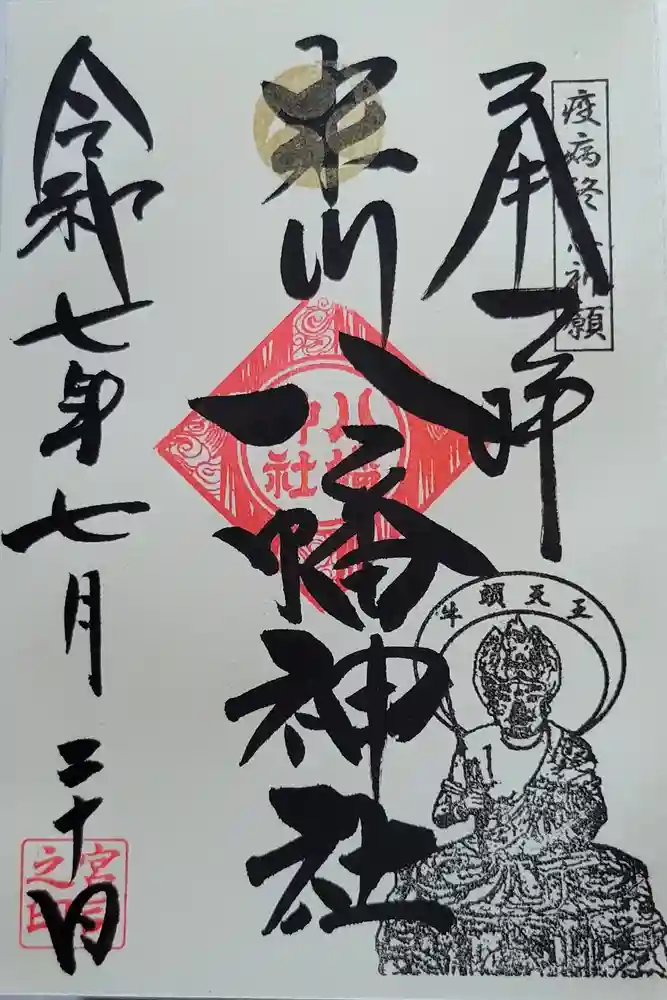 疫病終息祈願
奉拝
氷川八幡神社
八幡神社
牛頭天王
令和七年七月二十日
宮司之印